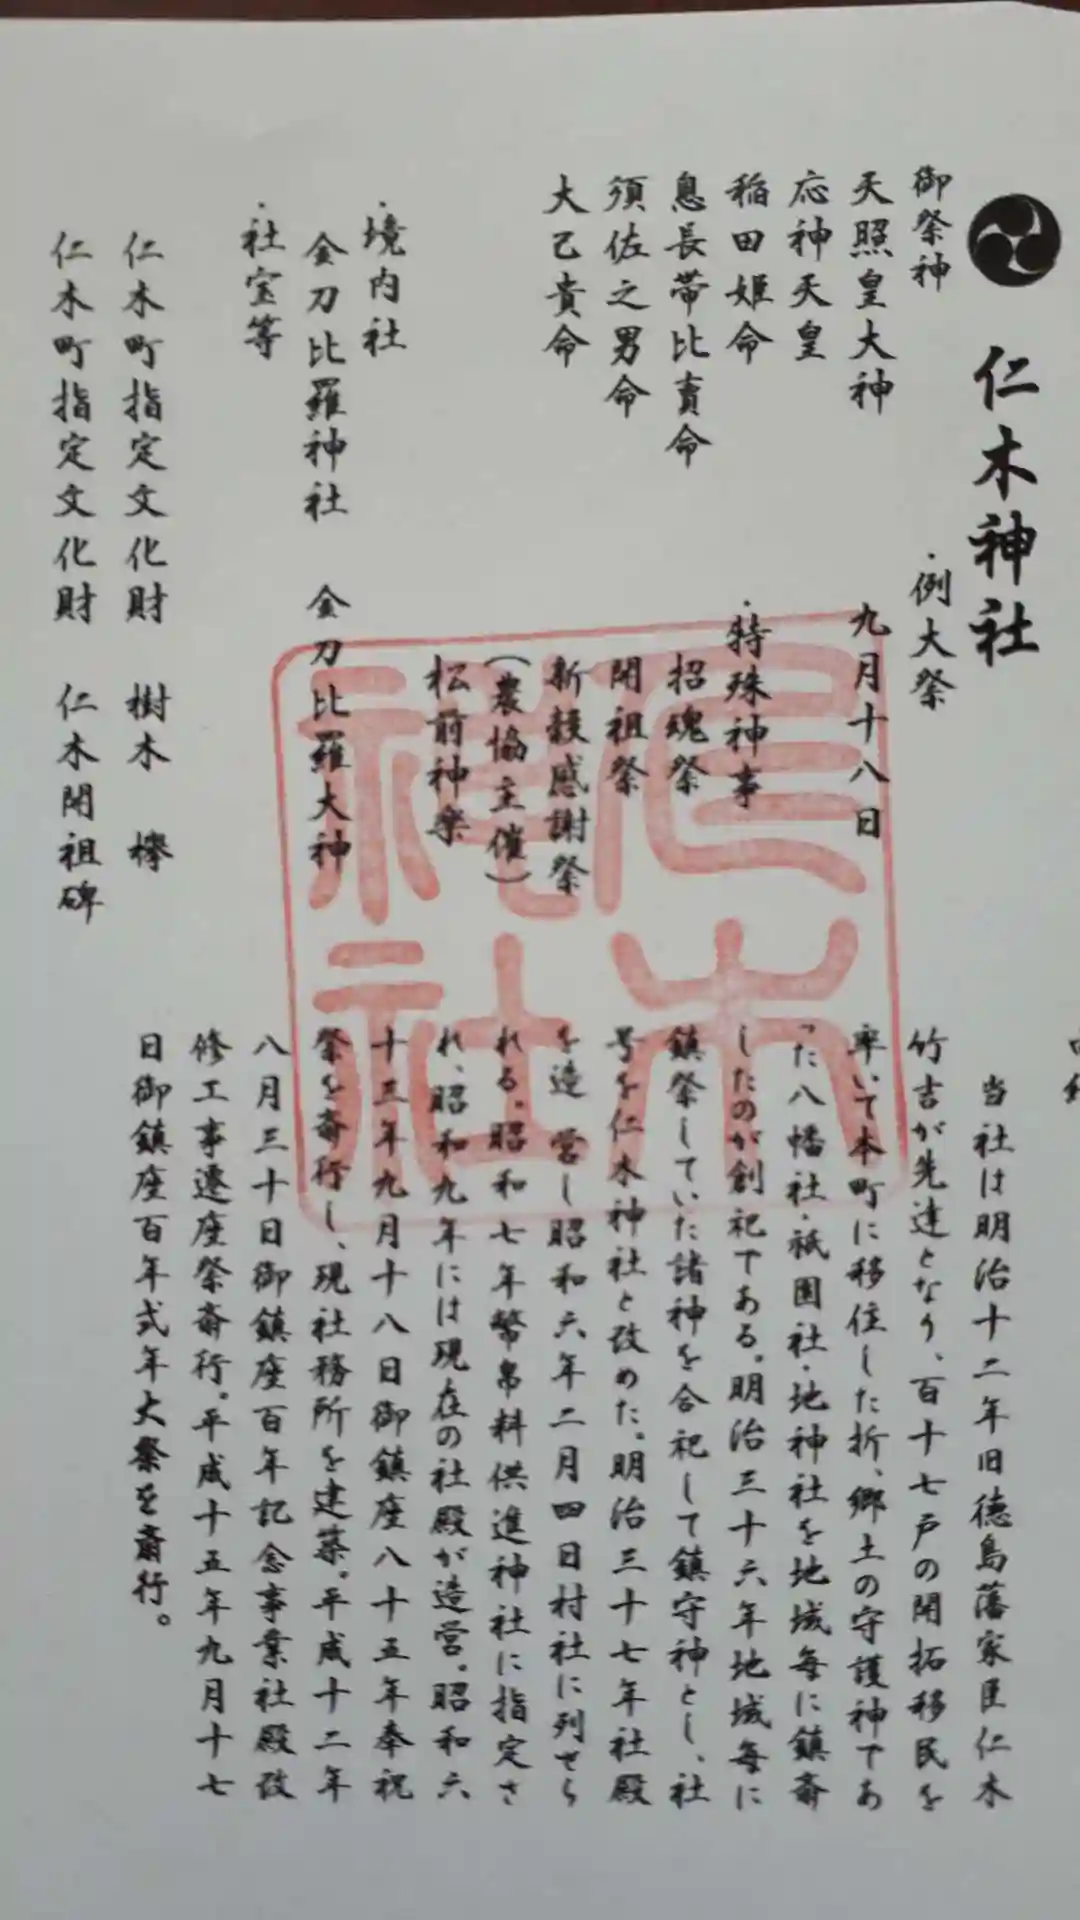 仁木神社
御祭神
天照皇大神
応神天皇
稲田姫命
息長帯比売命
須佐之男命
大己貴命
・例大祭
九月十八日
・特殊神事
招魂祭
開祖祭
新穀感謝祭
(農協主催)
松前神楽
・境内社
金刀比羅神社 金刀比羅大神
・社宝等
仁木町指定文化財 樹木 欅
仁木町指定文化財 仁木開祖碑
当社は明治十二年旧徳島藩家臣仁木
竹吉が先達となり、百十七戸の開拓移民を
率いて本町に移住した折、郷土の守護神であ
った八幡社・祇園社・地神社を地域毎に鎮斎
したのが創祀である。明治三十六年地域毎に
鎮祭していた諸神を合祀して鎮守神とし、社
号を仁木神社と改めた。明治三十七年社殿
を造営し昭和六年二月四日村社に列せら
れる。昭和七年幣帛料供進神社に指定さ
れ、昭和九年には現在の社殿が造営。昭和六
十三年九月十八日御鎮座八十五年奉祝
祭を斎行し、現社務所を建築。平成十二年
八月三十日御鎮座百年記念事業社殿改
修工事遷座祭斎行。平成十五年九月十七
日御鎮座百年式年大祭を斎行。
仁木
神社